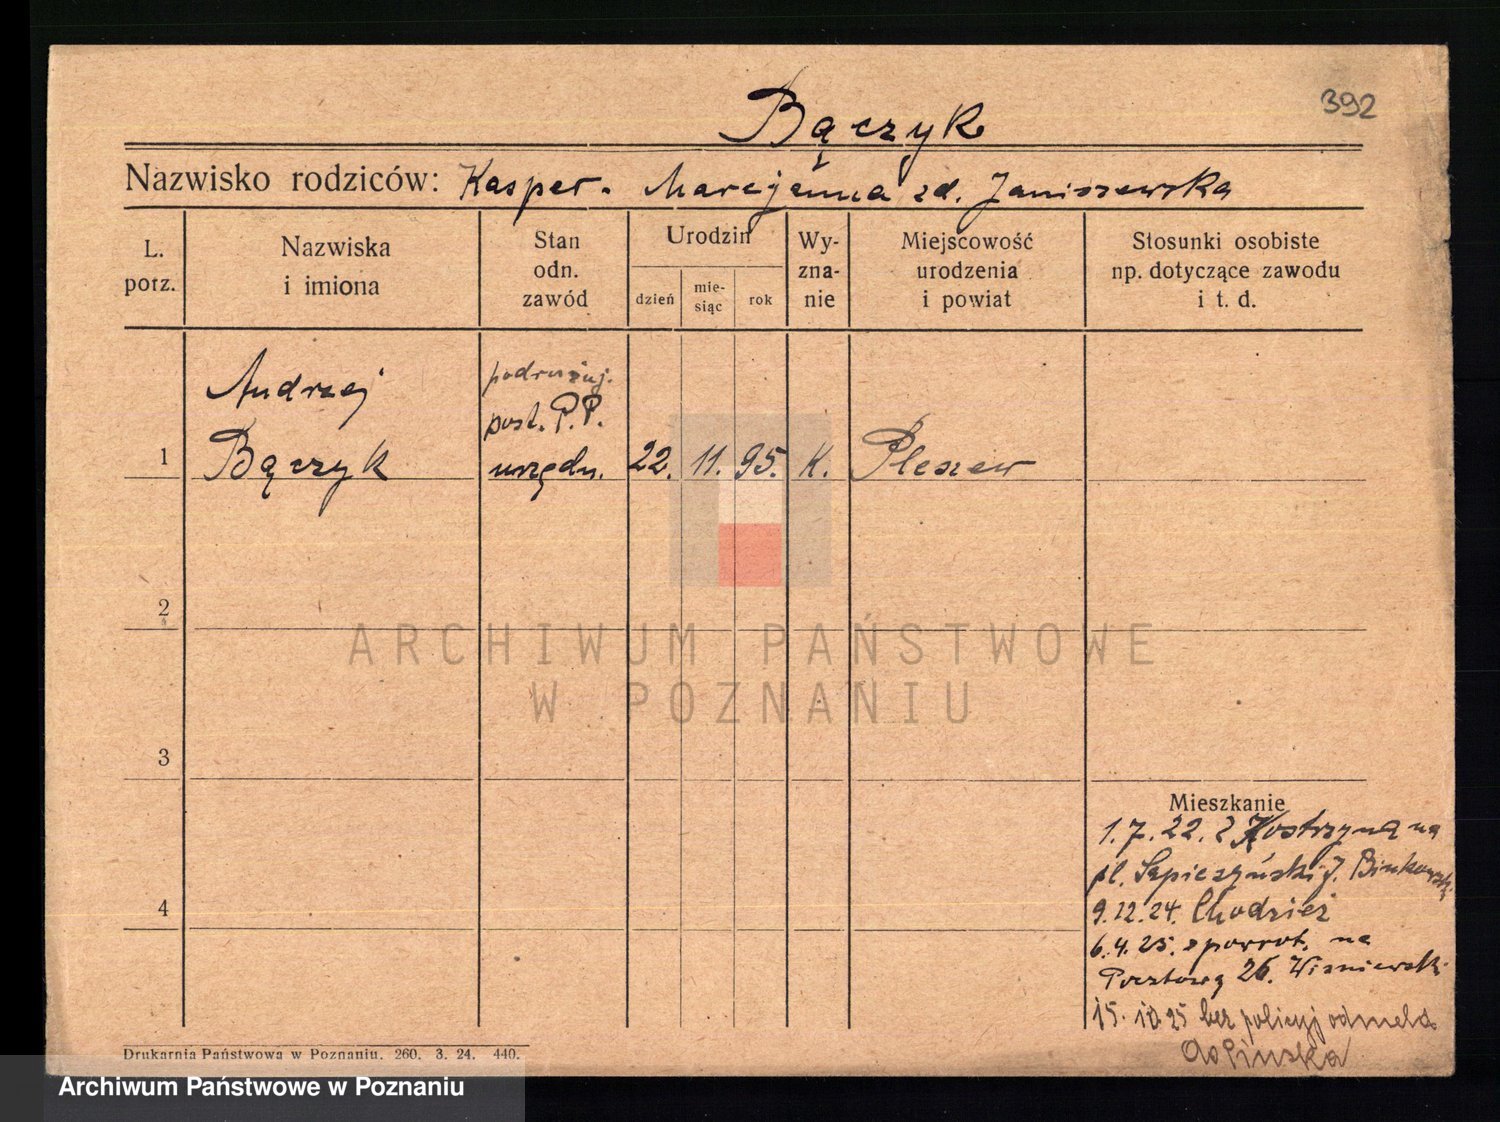 392
Bączyk
Nazwisko rodziców: Kasper. Marcjanna zd. Janiszewska
L. porz.
Nazwiska i imiona
Stan odn. zawód
Urodzin
dzień
mie-
siąc
rok
Wy-
zna-
nie
Miejscowość urodzenia i powiat
Stosunki osobiste np. dotyczące zawodu i t. d.
1
Andrzej
Bączyk
post. P.P.
urzędn.
22. 11. 95. K. Pleszew
2
3
4
Mieszkanie
1. 7. 22. z Kostrzyna na
pl. Sapieżyński J. Binkowski
9.12.24. Chodzież
6.4.25. z powrot. na
Pocztową 26. Wiśniewski
15. 10. 25 bez policyj odmeld
do Pińska
Drukarnia Państwowa w Poznaniu. 260. 3. 24. 440.
ARCHIWUM PAŃSTWOWE
W POZNANIU
Archiwum Państwowe w Poznaniu